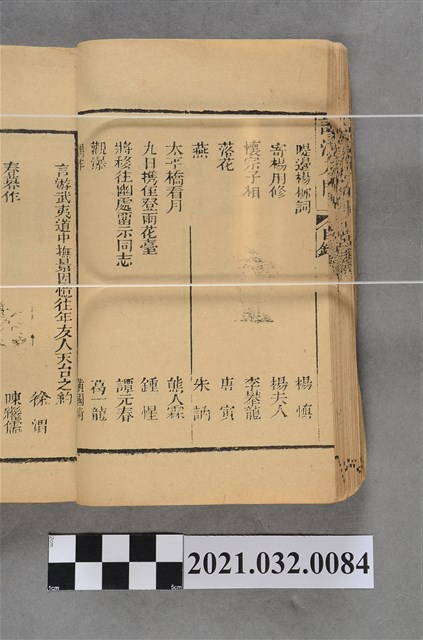 目錄
堤邊楊柳詞 楊慎
寄楊用修 楊夫人
懷宗子相 李攀龍
落花 唐寅
燕 朱訥
太平橋看月 熊人霖
九日攜侄登雨花臺 鍾惺
將移往幽處留示同志 譚元春
觀瀑 葛一龍
言游武夷道中撫景因憶往年友人天台之約 徐渭
春暮作 陳繼儒
2021.032.0084
1cm
5cm